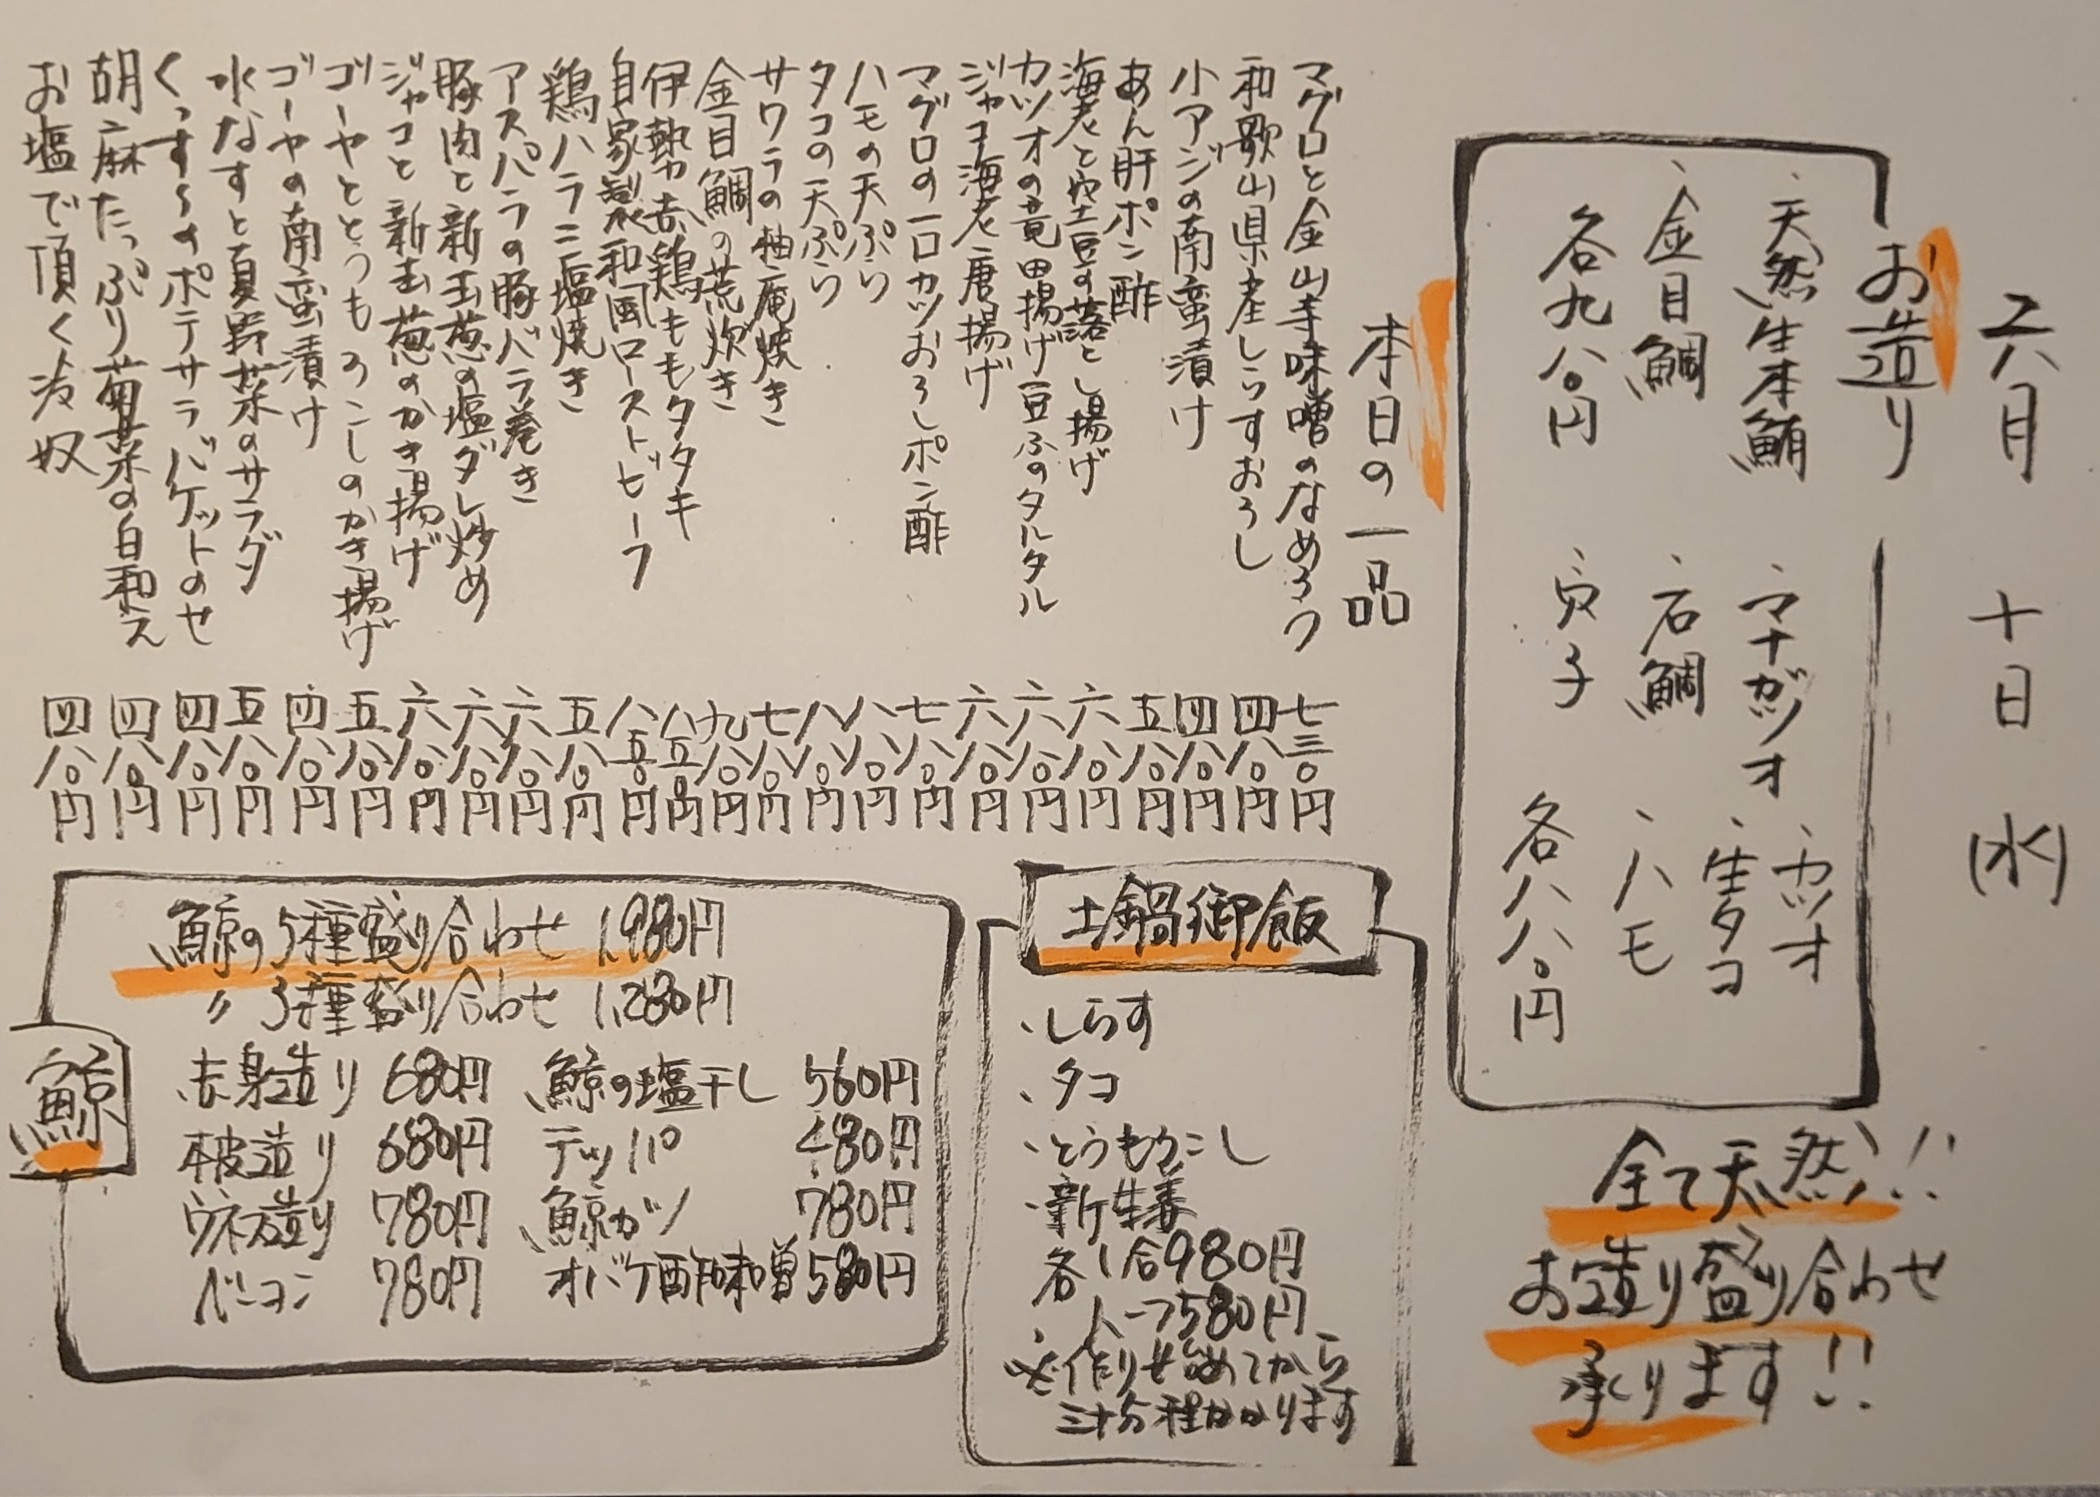 六月 十日 (水)
お造り
、天然生本鮪 、マナガツオ 、カツオ
、金目鯛 、石鯛 、生タコ
各九八〇円 、真子 、ハモ
各八八〇円
全て天然!!
お造り盛り合わせ
承ります!!
本日の一品
マグロと金山寺味噌のなめろう 七三〇円
和歌山県産しらすおろし 四八〇円
小アジの南蛮漬け 四八〇円
あん肝ポン酢 五八〇円
海老と空豆の落とし揚げ 六八〇円
カツオの竜田揚げ豆ふのタルタル 六八〇円
ジャコ海老唐揚げ 六八〇円
マグロの一口カツおろしポン酢 七八〇円
ハモの天ぷら 八八〇円
タコの天ぷら 八八〇円
サワラの柚庵焼き 七八〇円
金目鯛の荒炊き 九八〇円
伊勢赤鶏ももタタキ 八五〇円
自家製和風ローストビーフ 八五〇円
鶏ハラミ塩焼き 五八〇円
アスパラの豚バラ巻き 六八〇円
豚肉と新玉葱の塩ダレ炒め 六八〇円
ジャコと新玉葱のかき揚げ 六八〇円
ゴーヤととうもろこしのかき揚げ 五八〇円
ゴーヤの南蛮漬け 四八〇円
水なすと夏野菜のサラダ 五八〇円
くっす〜のポテサラバケットのせ 四八〇円
胡麻たっぷり菊菜の白和え 四八〇円
お塩で頂く冷奴 四八〇円
土鍋御飯
、しらす
、タコ
、とうもろこし
、新生姜
各1合980円
ハーフ580円
※作り始めてから
三十分程かかります
鯨
鯨の5種盛り合わせ 1,980円
〃 3種盛り合わせ 1,280円
赤身造り 680円 鯨の塩干し 560円
本皮造り 680円 テッパ 480円
ウネ造り 780円 鯨カツ 780円
ベーコン 780円 オバケ酢味噌 580円